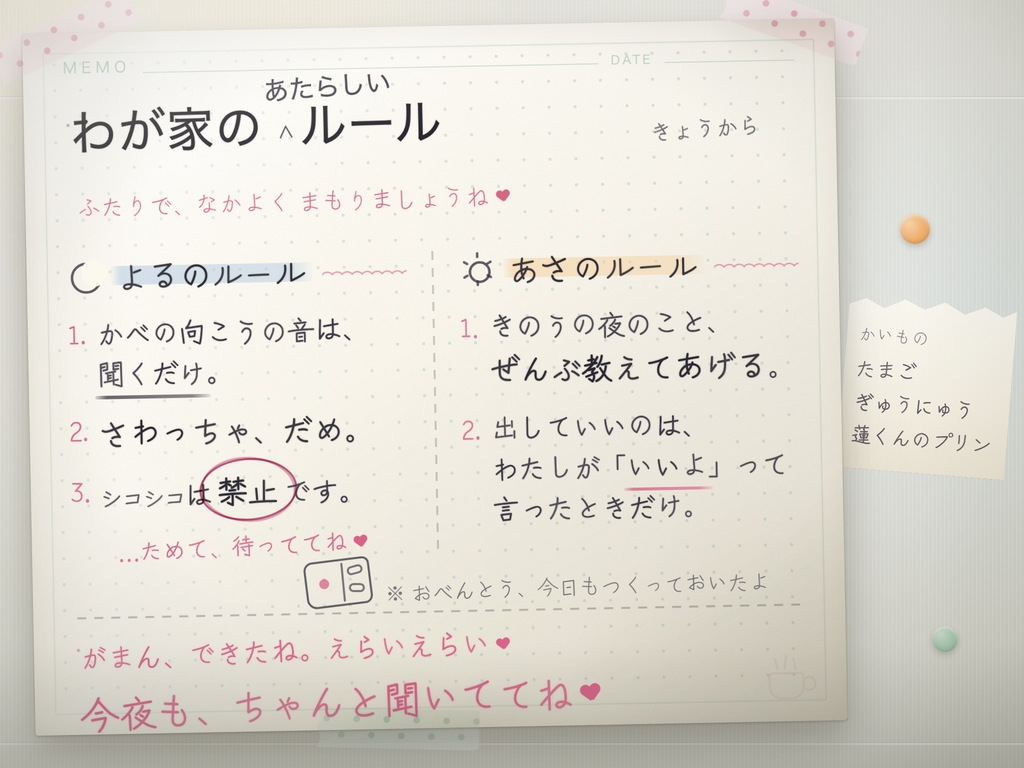 MEMO
DATE
わが家の あたらしい ルール
きょうから
ふたりで、なかよく まもりましょうね♥
よるのルール
1. かべの向こうの音は、
聞くだけ。
2. さわっちゃ、だめ。
3. シコシコは禁止です。
…ためて、待っててね♥
あさのルール
1. きのうの夜のこと、
ぜんぶ教えてあげる。
2. 出していいのは、
わたしが「いいよ」って
言ったときだけ。
※ おべんとう、今日もつくっておいたよ
がまん、できたね。えらいえらい♥
今夜も、ちゃんと聞いててね♥
かいもの
たまご
ぎゅうにゅう
蓮くんのプリン